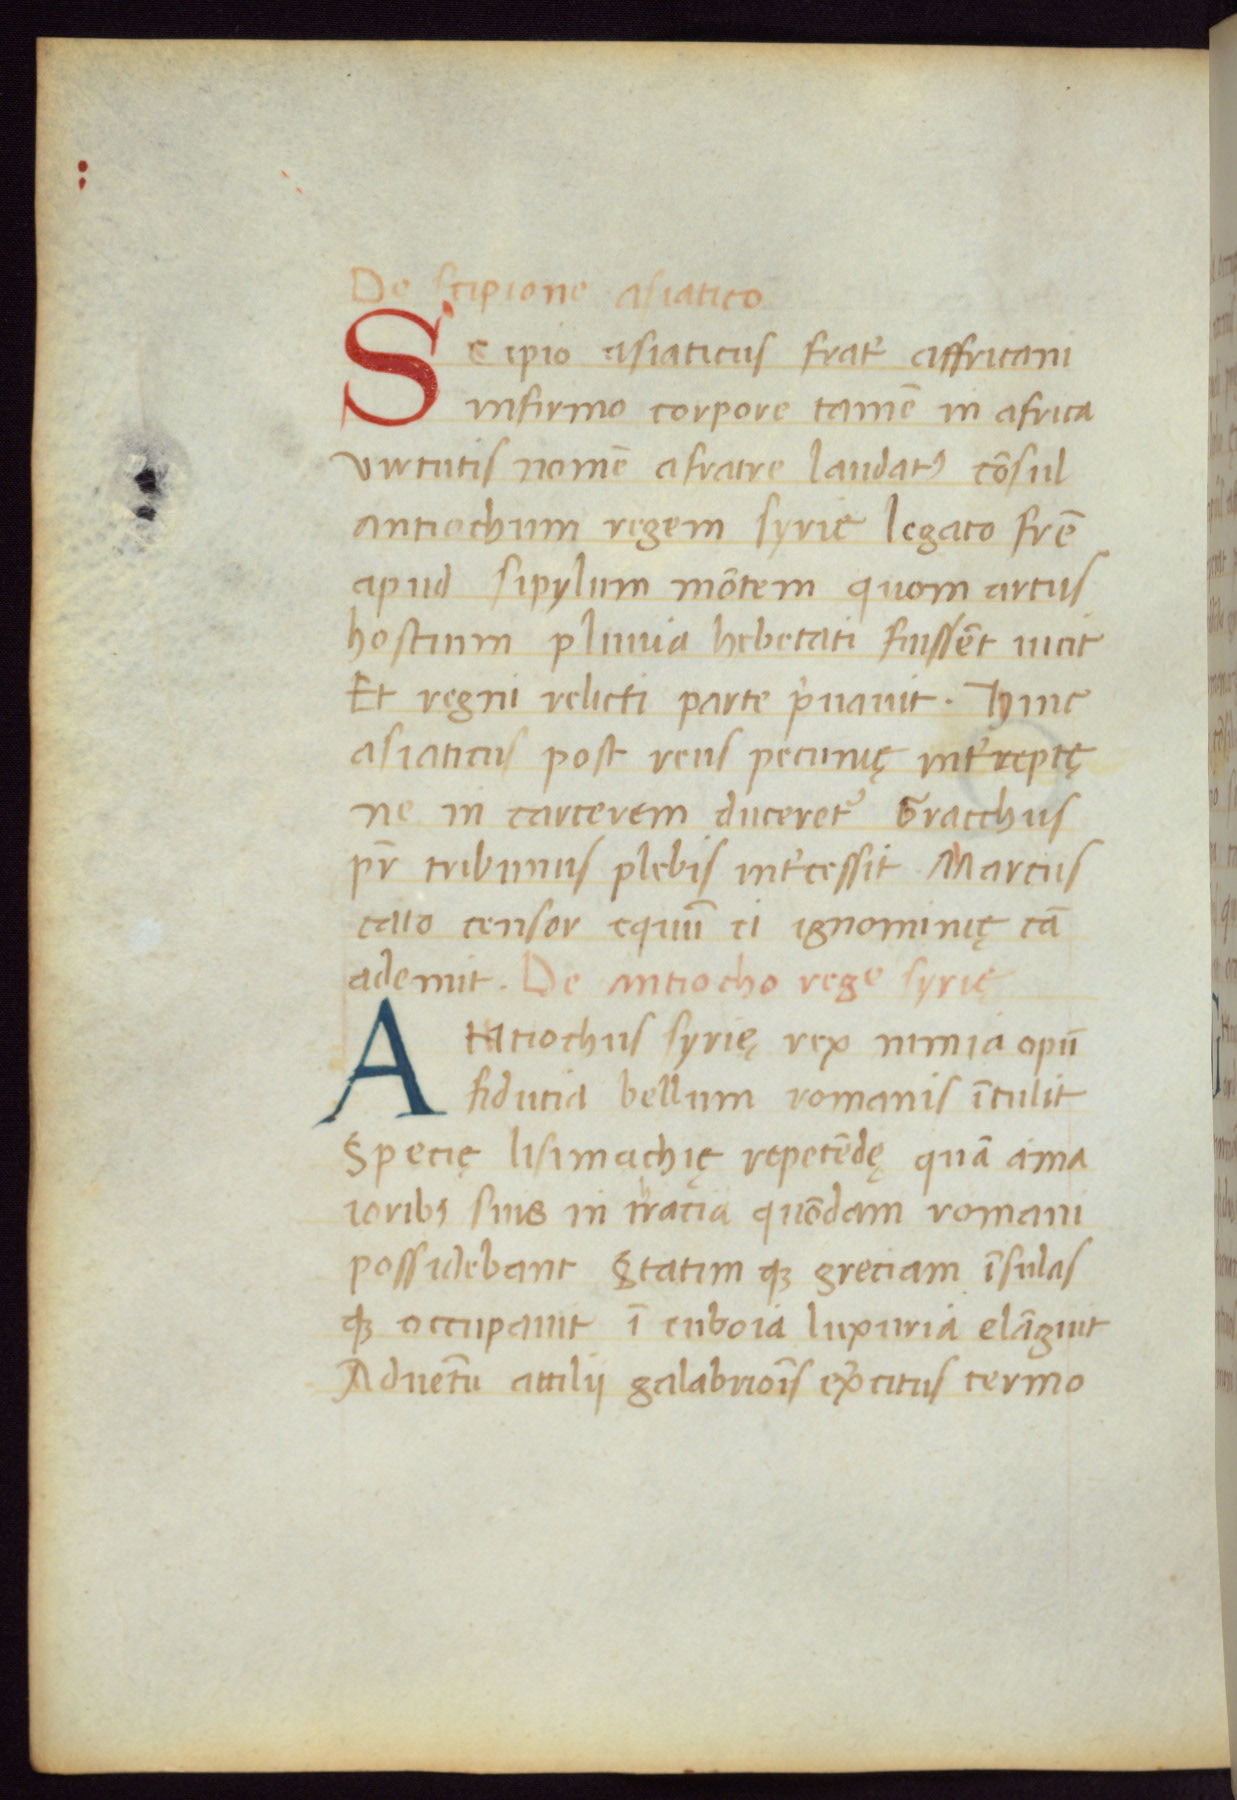 De scipione asiatico
Scipio asiaticus frat̃ affricani
infirmo corpore tamē in africa
virtutis nomē afratre laudatꝰ cōsul
antiochum regem syrie legato frē
apud sipylum mōtem quom arcus
hostium pluuia hebetati fuissēt uicit
Et regni relicti parte p̃uauit. hinc
asiaticus post reus pecunię int̃reptę
ne in carcerem duceret᷑ Gracchus
pr̄ tribunus plebis int̃cessit Marcus
cato censor equū ei ignominię cā
ademit. De antiocho rege syrię
Antiochus syrię rex nimia opū
fiducia bellum romanis ītulit
Specię lisimachię repetēdę quā ama
ioribꝰ suis in tracia quōdam romani
possidebant Statim qꝫ greciam īsulas
qꝫ occupauit ī euboia luxuria elāguit
Aduētu attilij galabriōis exp̃citus termo